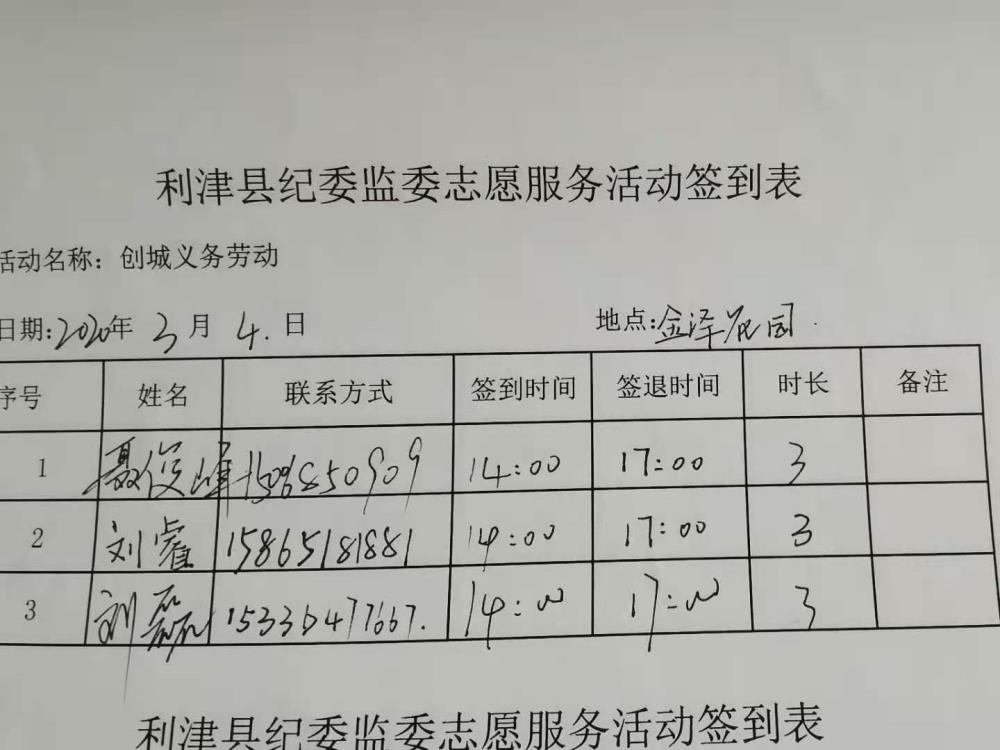 利津县纪委监委志愿服务活动签到表
活动名称：创城义务劳动
日期:2020年 3月 4.日 地点:金泽花园.
序号 姓名 联系方式 签到时间 签退时间 时长 备注
1 聂俊峰 14:00 17:00 3
2 刘睿 15865181881 14:00 17:00 3
3 刘磊 14:00 17:00 3
利津县纪委监委志愿服务活动签到表